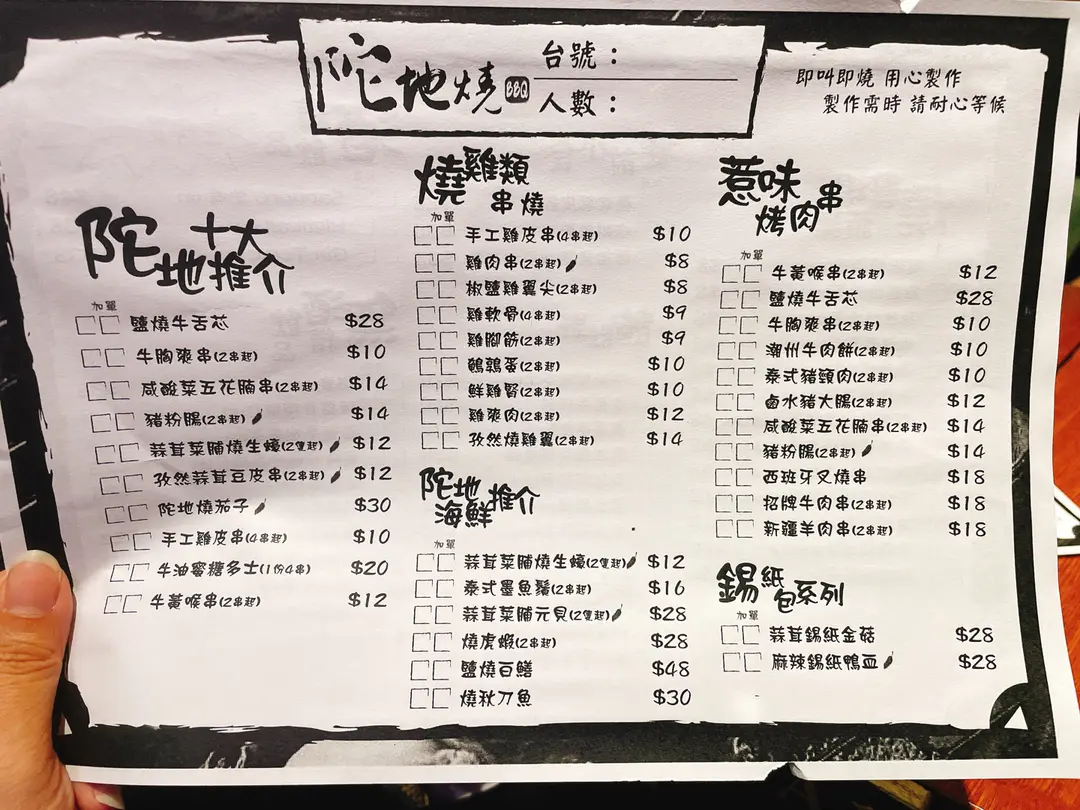 陀地燒 BBQ
台號：
人數：
即叫即燒 用心製作
製作需時 請耐心等候
陀地十大推介
加單
鹽燒牛舌芯 $28
牛胸爽串(2串起) $10
咸酸菜五花腩串(2串起) $14
豬粉腸(2串起) $14
蒜茸菜脯燒生蠔(2隻起) $12
孜然蒜茸豆皮串(2串起) $12
陀地燒茄子 $30
手工雞皮串(4串起) $10
牛油蜜糖多士(1份4串) $20
牛黃喉串(2串起) $12
燒雞類串燒
加單
手工雞皮串(4串起) $10
雞肉串(2串起) $8
椒鹽雞翼尖(2串起) $8
雞軟骨(4串起) $9
雞腳筋(2串起) $9
鵪鶉蛋(2串起) $10
鮮雞腎(2串起) $10
雞爽肉(2串起) $12
孜然燒雞翼(2串起) $14
陀地海鮮推介
加單
蒜茸菜脯燒生蠔(2隻起) $12
泰式墨魚鬚(2串起) $16
蒜茸菜脯元貝(2隻起) $28
燒虎蝦(2串起) $28
鹽燒白鱔 $48
燒秋刀魚 $30
惹味烤肉串
加單
牛黃喉串(2串起) $12
鹽燒牛舌芯 $28
牛胸爽串(2串起) $10
潮州牛肉餅(2串起) $10
泰式豬頸肉(2串起) $10
鹵水豬大腸(2串起) $12
咸酸菜五花腩串(2串起) $14
豬粉腸(2串起) $14
西班牙叉燒串 $18
招牌牛肉串(2串起) $18
新疆羊肉串(2串起) $18
錫紙包系列
加單
蒜茸錫紙金菇 $28
麻辣錫紙鴨血 $28